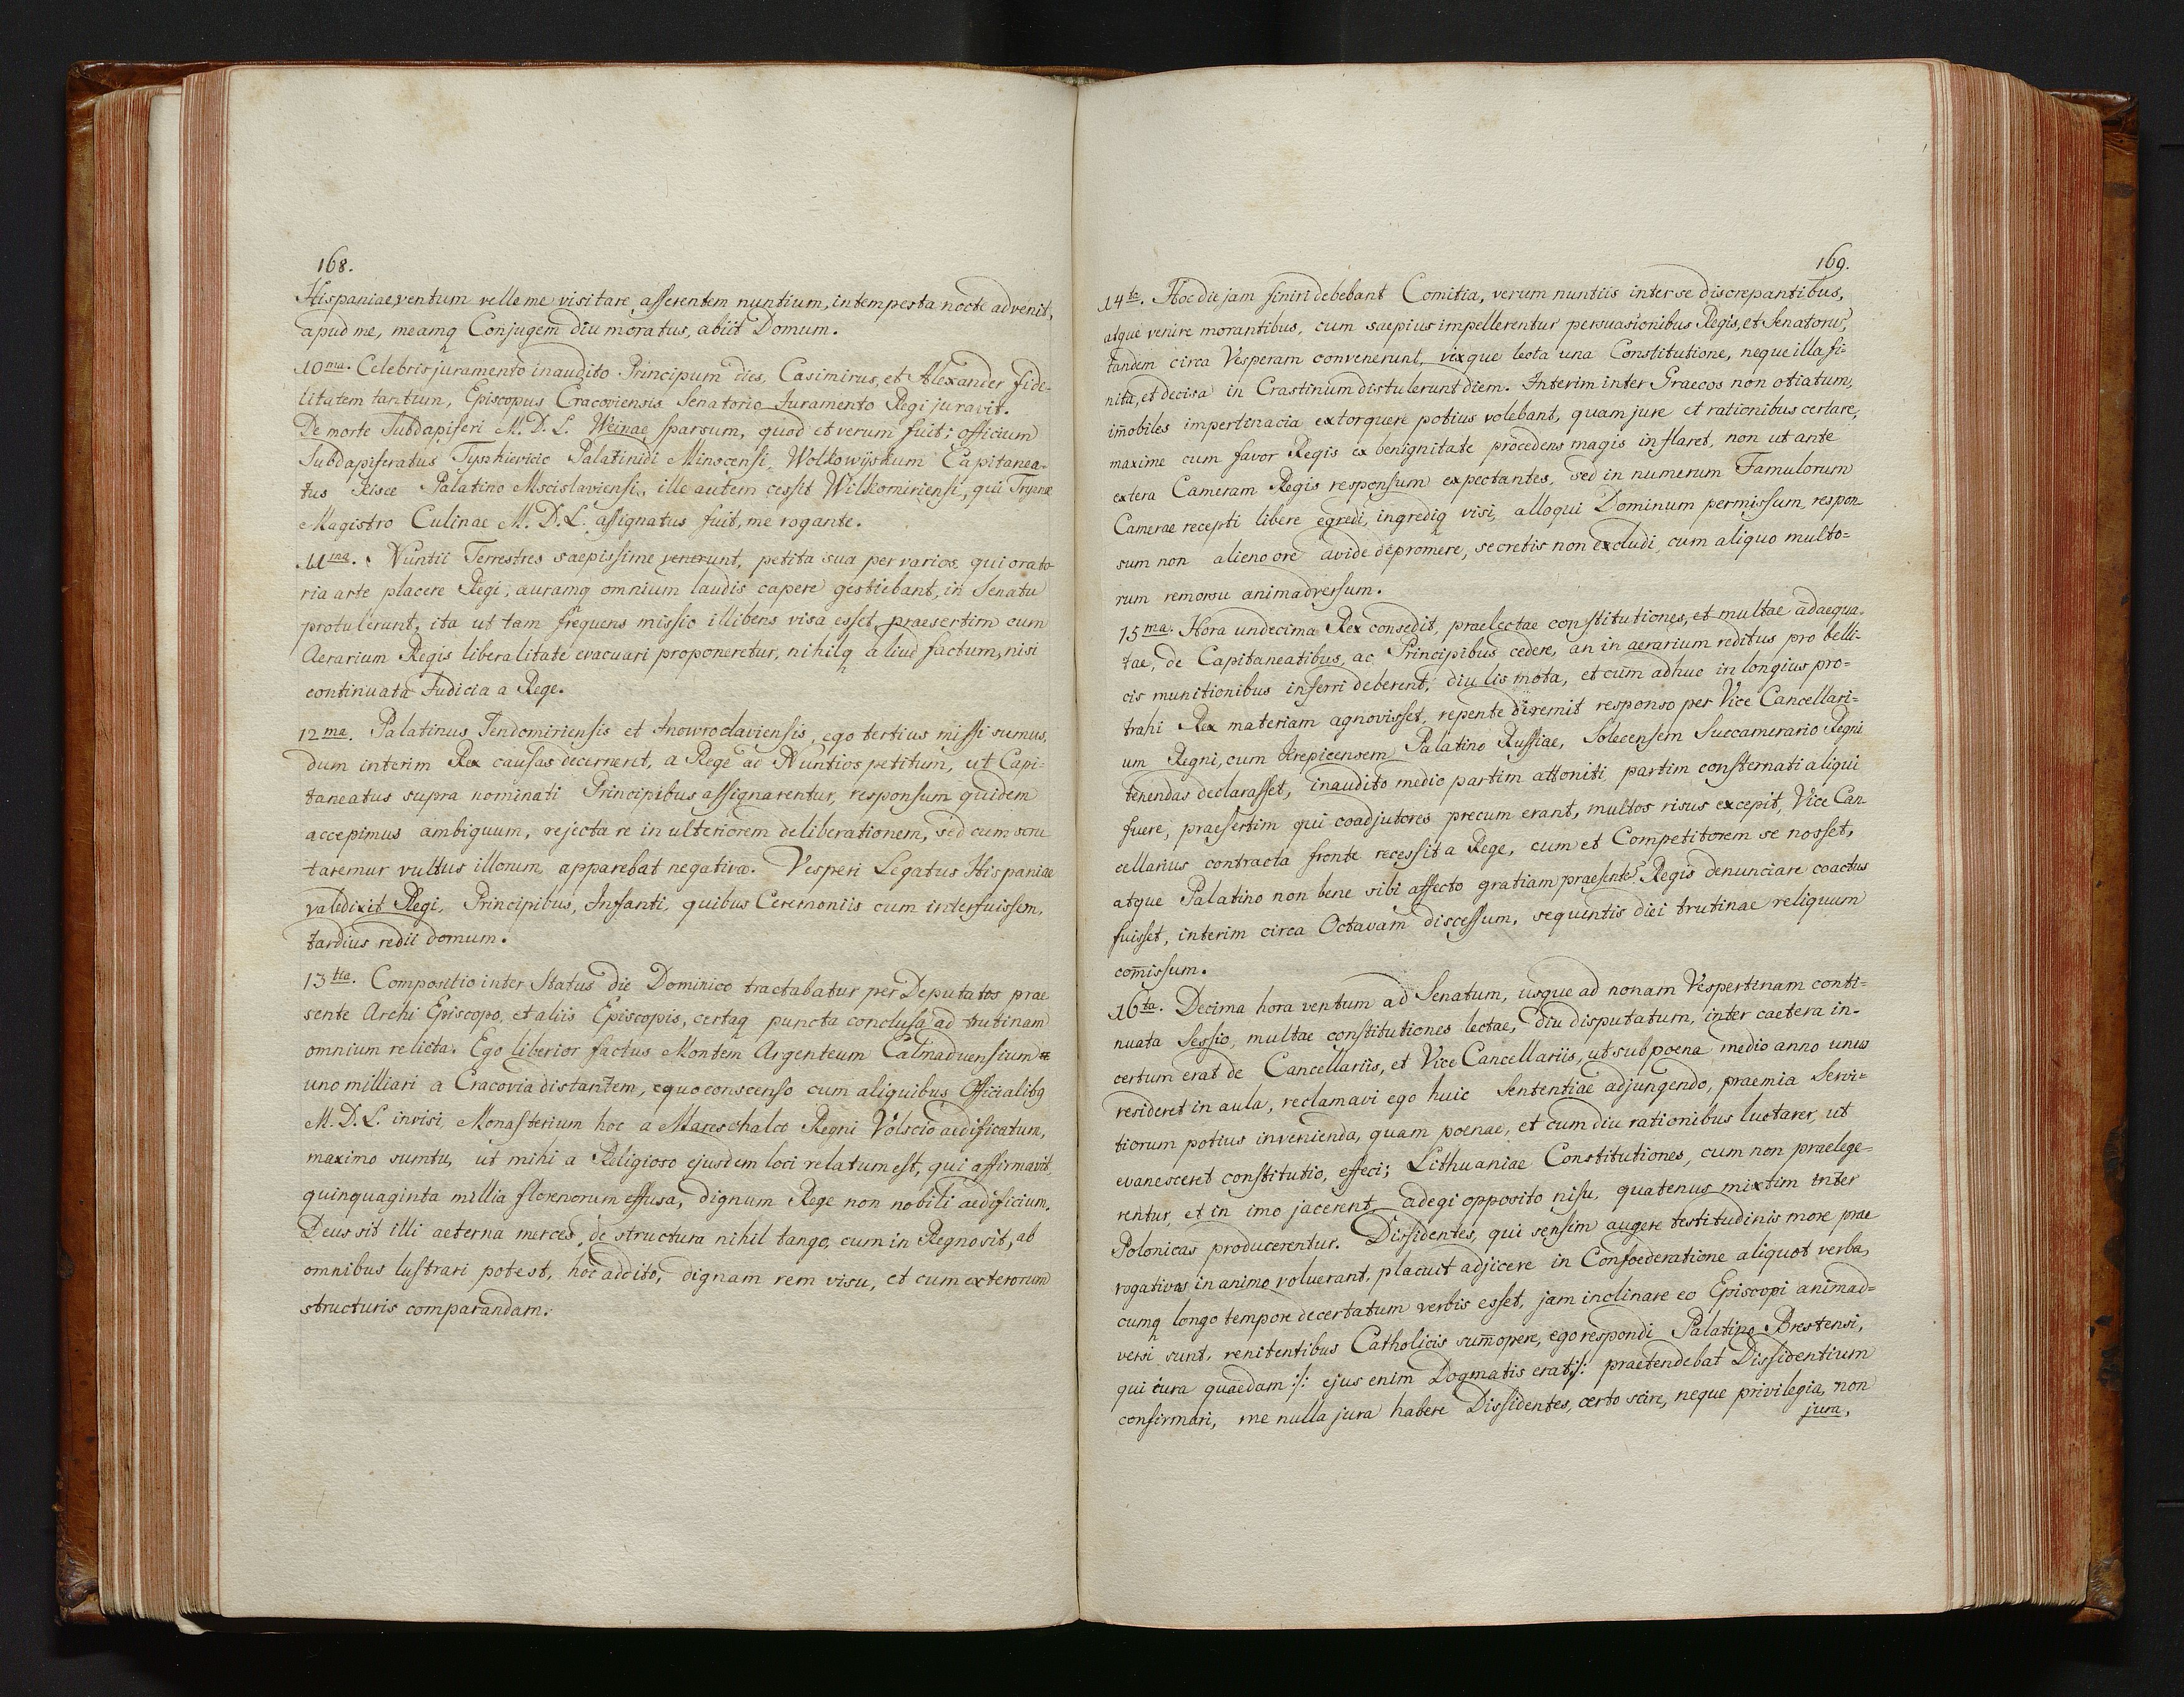 168.
Hispaniae ventum velle me visitare asserentem nuntium, intempesta nocte advenit,
apud me, meamq Conjugem diu moratus, abiit Domum.
10ma. Celebris juramento inaudito Principum dies, Casimirus, et Alexander fide-
litatem tantum, Episcopus Cracoviensis Senatorio Juramento Regi juravit.
De morte Subdapiferi M. D. L. Weinae sparsum, quod et verum fuit; officium
Subdapiferatus Tyszkievicio Palatinidi Minscensi, Wolkowÿskum Capitanea-
tus Kisce Palatino Mscislaviensi, ille autem cessit Wilkomiriensi, qui Tryznae
Magistro Culinae M. D. L. assignatus fuit, me rogante.
11ma. Nuntii Terrestres saepissime venerunt, petita sua per varios, qui orato
ria arte placere Regi, auramq omnium laudis capere gestiebant, in Senatu
protulerunt, ita ut tam frequens missio illibens visa esset, praesertim cum
Aerarium Regis liberalitate evacuari proponeretur, nihilq aliud factum, nisi
continuata Judicia a Rege.
12ma. Palatinus Sendomiriensis et Inowroclaviensis, ego tertius missi sumus,
dum interim Rex causas decerneret, a Rege ad Nuntios petitum, ut Capi-
taneatus supra nominati Principibus assignarentur, responsum quidem
accepimus ambiguum, rejecta re in ulteriorem deliberationem, sed cum scru
taremur vultus illorum, apparebat negativa. Vesperi Legatus Hispaniae
valedixit Regi, Principibus, Infanti, quibus Ceremoniis cum interfuissem,
tardius redii domum.
13tia. Compositio inter Status die Dominico tractabatur per Deputatos prae
sente Archi Episcopo, et aliis Episcopis, certaq puncta conclusa ad trutinam
omnium relicta. Ego liberior factus Montem Argenteum Calmaduensium
uno milliari a Cracovia distantem, equo conscenso cum aliquibus Officialibq
M. D. L. invisi, Monasterium hoc a Mareschalco Regni Volscio aedificatum,
maximo sumtu, ut mihi a Religioso ejusdem loci relatum est, qui affirmavit,
quinquaginta millia florenorum effusa, dignum Rege non nobili aedificium.
Deus sit illi aeterna merces, de structura nihil tango, cum in Regno sit, ab
omnibus lustrari potest, hoc addito, dignam rem visu, et cum exterorum
structuris comparandam.
169.
14ta. Hoc die jam finiri debebant Comitia, verum nuntiis inter se discrepantibus,
atque venire morantibus, cum saepius impellerentur persuasionibus Regis, et Senatoru,
tandem circa Vesperam convenerunt, vixque lecta una Constitutione, neque illa fi-
nita, et decisa in Crastinum distulerunt diem. Interim inter Graecos non otiatum,
im̄obiles impertinacia extorquere potius volebant, quam jure et rationibus certare,
maxime cum favor Regis ex benignitate procedens magis inflaret, non ut ante
extera Cameram Regis responsum expectantes, sed in numerum Famulorum
Camerae recepti libere egredi, ingrediq visi, alloqui Dominum permissum, respon
sum non alieno ore avide depromere, secretis non excludi, cum aliquo multo=
rum remorsu animadversum.
15ma. Hora undecima Rex consedit, praelectae constitutiones, et multae adaequa-
tae, de Capitaneatibus, ac Principibus cedere, an in aerarium reditus pro belli-
cis munitionibus inferri deberent, diu lis mota, et cum adhuc in longius pro=
trahi Rex materiam agnovisset, repente diremit responso per Vice Cancellari=
um Regni, cum Krepicensem Palatino Russiae, Solecensem Succamerario Regni
tenendas declarasset, inaudito medio partim attoniti, partim consternati aliqui
fuere, praesertim qui coadjutores precum erant, multos risus excepit, Vice Can
cellarius contracta fronte recessit a Rege, cum et Competitorem se nosset,
atque Palatino non bene sibi affecto gratiam praesente Regis denunciare coactus
fuisset, interim circa Octavam discessum, sequentis diei trutinae reliquum
com̄issum.
16ta. Decima hora ventum ad Senatum, usque ad nonam Vespertinam conti=
nuata Sessio, multae constitutiones lectae, diu disputatum, inter caetera in-
certum erat de Cancellariis, et Vice Cancellariis, ut sub poena medio anno unus
resideret in aula, reclamavi ego huic Sententiae adjungendo, praemia Servi=
tiorum potius invenienda, quam poenae, et cum diu rationibus luctarer, ut
evanesceret constitutio, effeci; Lithuaniae Constitutiones, cum non praelege=
rentur, et in imo jacerent, adegi opposito nisu, quatenus mixtim inter
Polonicas producerentur. Dissidentes, qui sensim augere testitudinis more prae
rogativas in animo voluerant, placuit adjicere in Confoederatione aliquot verba,
cumq longo tempore decertatum verbis esset, jam inclinare eo Episcopi animad=
versi sunt, renitentibus Catholicis sum̄opere, ego respondi Palatino Brestensi,
qui jura quaedam :/: ejus enim Dogmatis erat :/: praetendebat Dissidentium
confirmari, me nulla jura habere Dissidentes, certo scire, neque privilegia, non
jura,